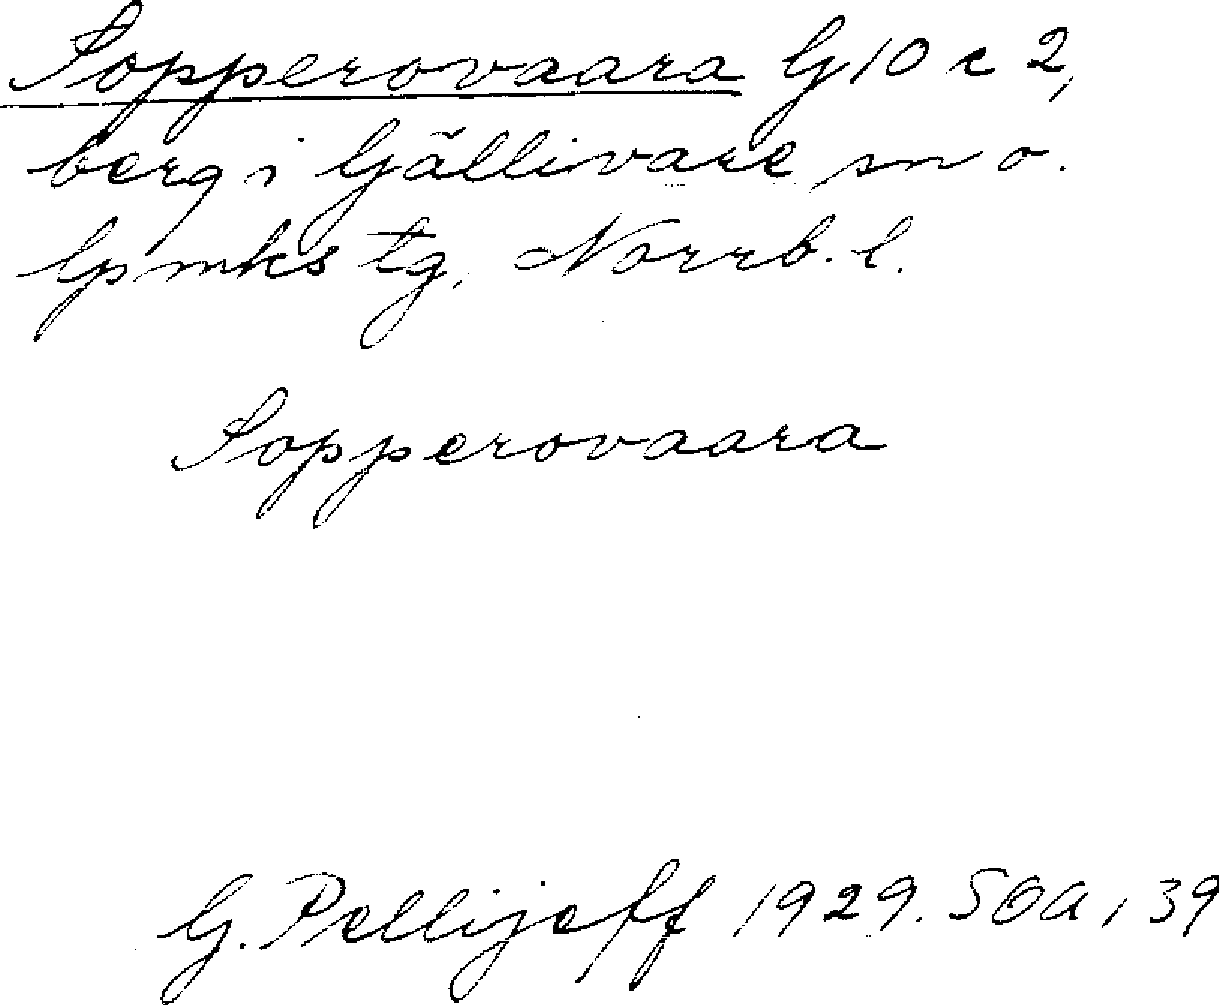 Sopperovaara G10 c 2,
berg i Gällivare sn o.
lpmks tg, Norrb. l.
Sopperovaara
G. Pellijeff 1929. SOA, 39